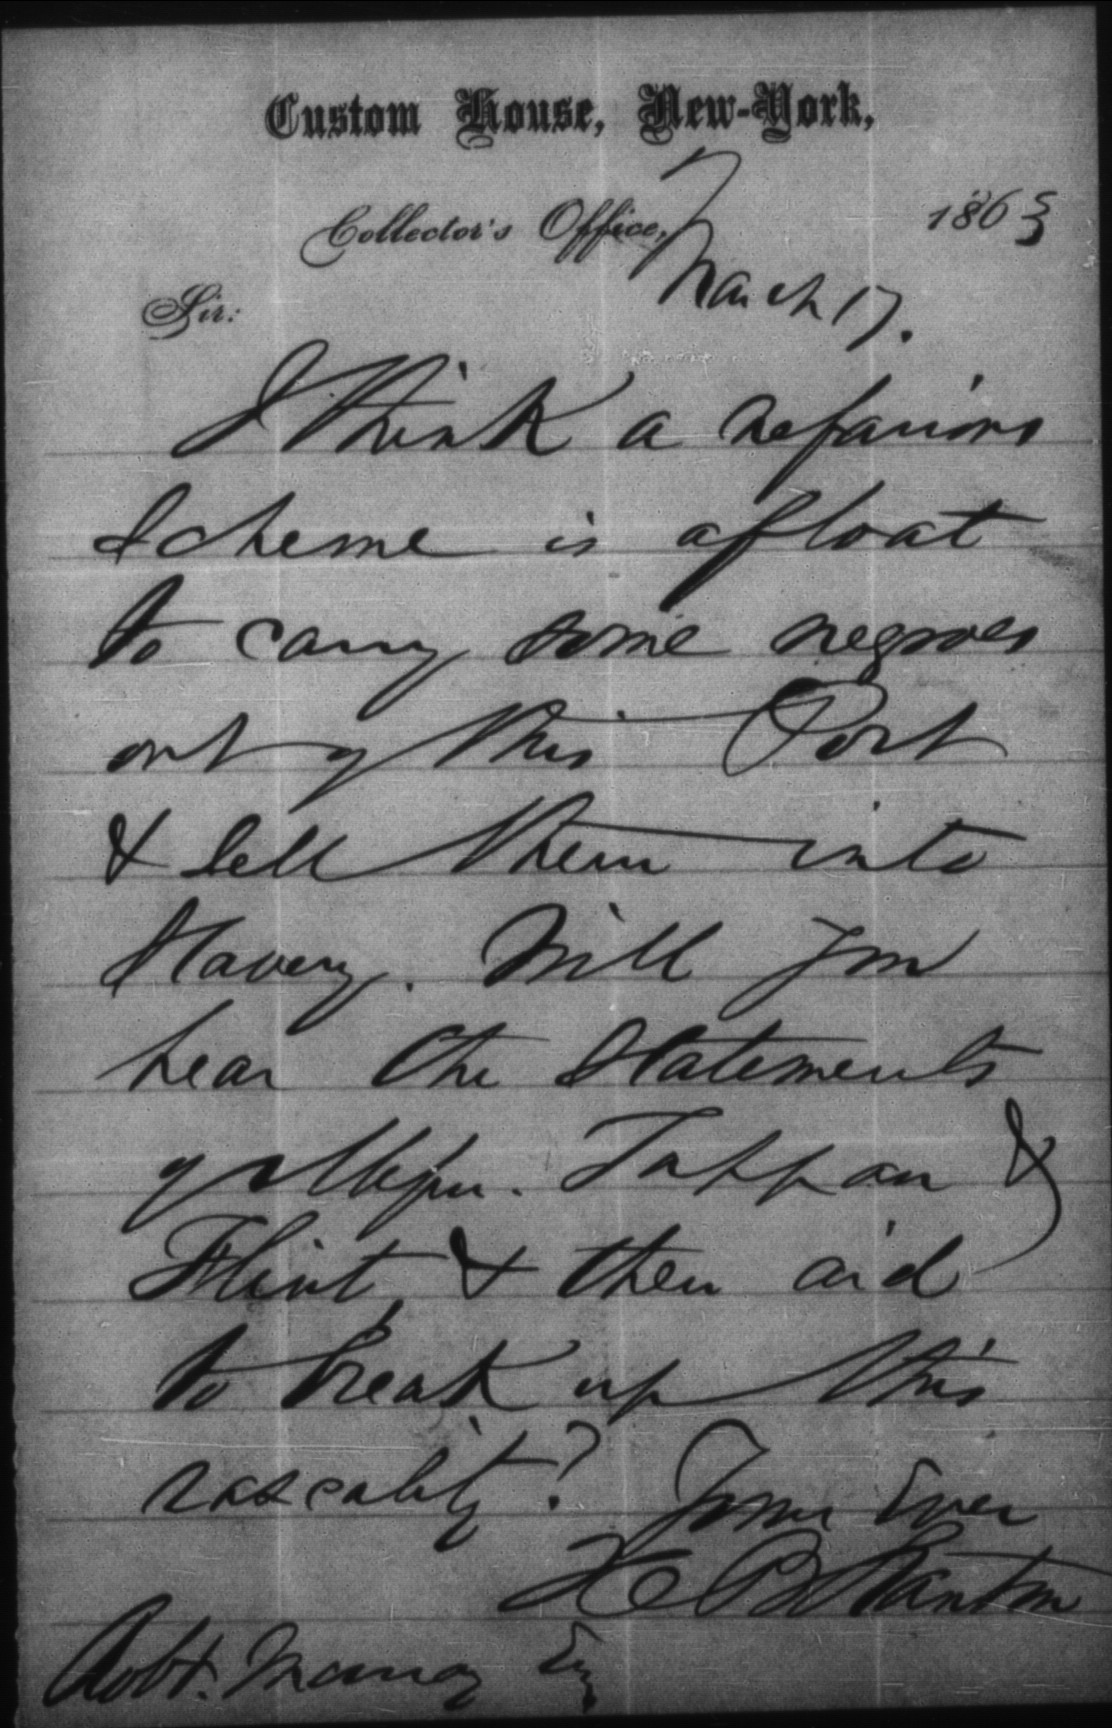 Custom House, New-York,
Collector's Office, 1863
March 17.
Sir:
I think a nefarious
scheme is afloat
to carry some negroes
out of this Port
& sell them into
Slavery. Will you
hear the statements
of Messrs. Tappan &
Flint, & then aid
to break up this
rascality? Yours Ever
H B Stanton
Robt. Murray Esq